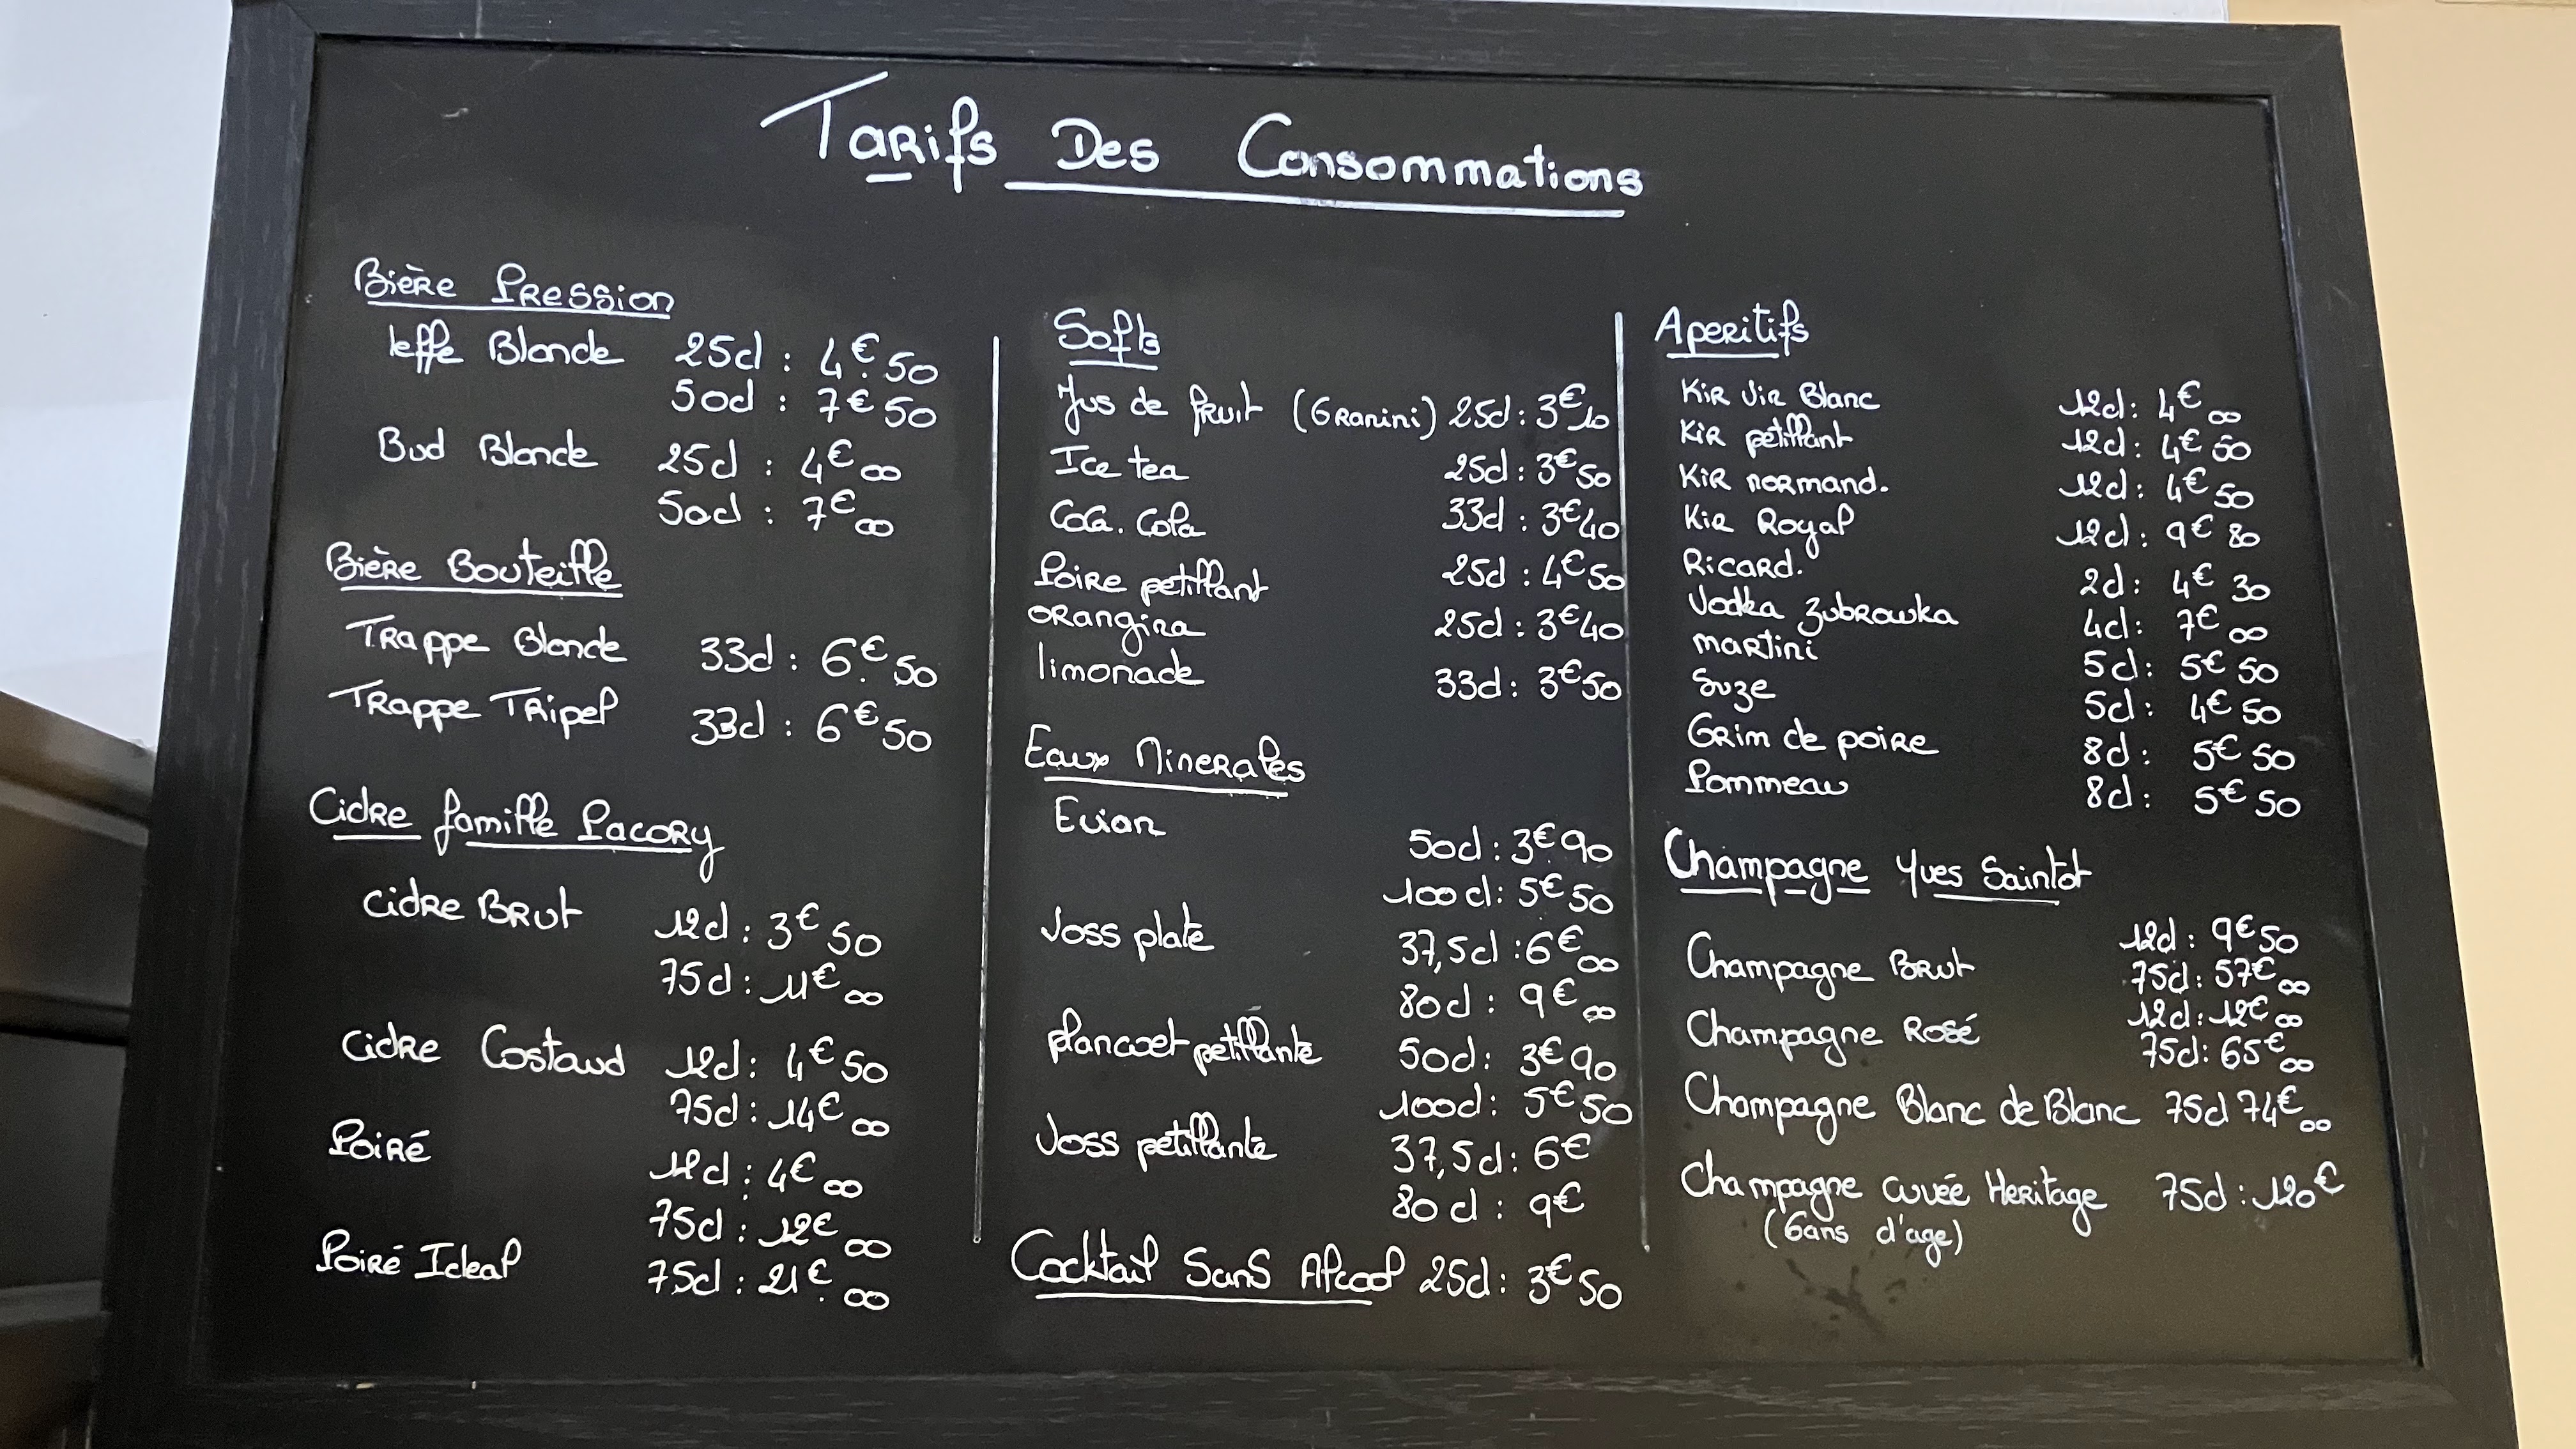 Tarifs Des Consommations
Bière Pression
leffe Blonde 25cl : 4€50
50cl : 7€50
Bud Blonde 25cl : 4€00
50cl : 7€00
Bière Bouteille
Trappe Blonde 33cl : 6€50
Trappe Tripel 33cl : 6€50
Cidre famille Pacory
Cidre Brut 12cl : 3€50
75cl : 11€00
Cidre Costaud 12cl : 4€50
75cl : 14€00
Poiré 12cl : 4€00
75cl : 12€00
Poiré Ideal 75cl : 21€00
Softs
Jus de fruit (Granini) 25cl : 3€10
Ice tea 25cl : 3€50
Coca. Cola 33cl : 3€40
Poire petillant 25cl : 4€50
orangina 25cl : 3€40
limonade 33cl : 3€50
Eaux Minerales
Evian 50cl : 3€90
100cl : 5€50
Voss plate 37,5cl : 6€00
80cl : 9€00
plancoet petillante 50cl : 3€90
100cl : 5€50
Voss petillante 37,5cl : 6€
80cl : 9€
Cocktail Sans Alcool 25cl : 3€50
Aperitifs
Kir Vin Blanc 12cl : 4€00
Kir petillant 12cl : 4€50
Kir normand. 12cl : 4€50
Kir Royal 12cl : 9€80
Ricard. 2cl : 4€30
Vodka Zubrowka 4cl : 7€00
martini 5cl : 5€50
Suze 5cl : 4€50
Grim de poire 8cl : 5€50
Pommeau 8cl : 5€50
Champagne Yves Saintot
Champagne Brut 12cl : 9€50
75cl : 57€00
Champagne Rosé 12cl : 12€00
75cl : 65€00
Champagne Blanc de Blanc 75cl 74€00
Champagne cuvée Heritage 75cl : 120€
(6ans d'age)